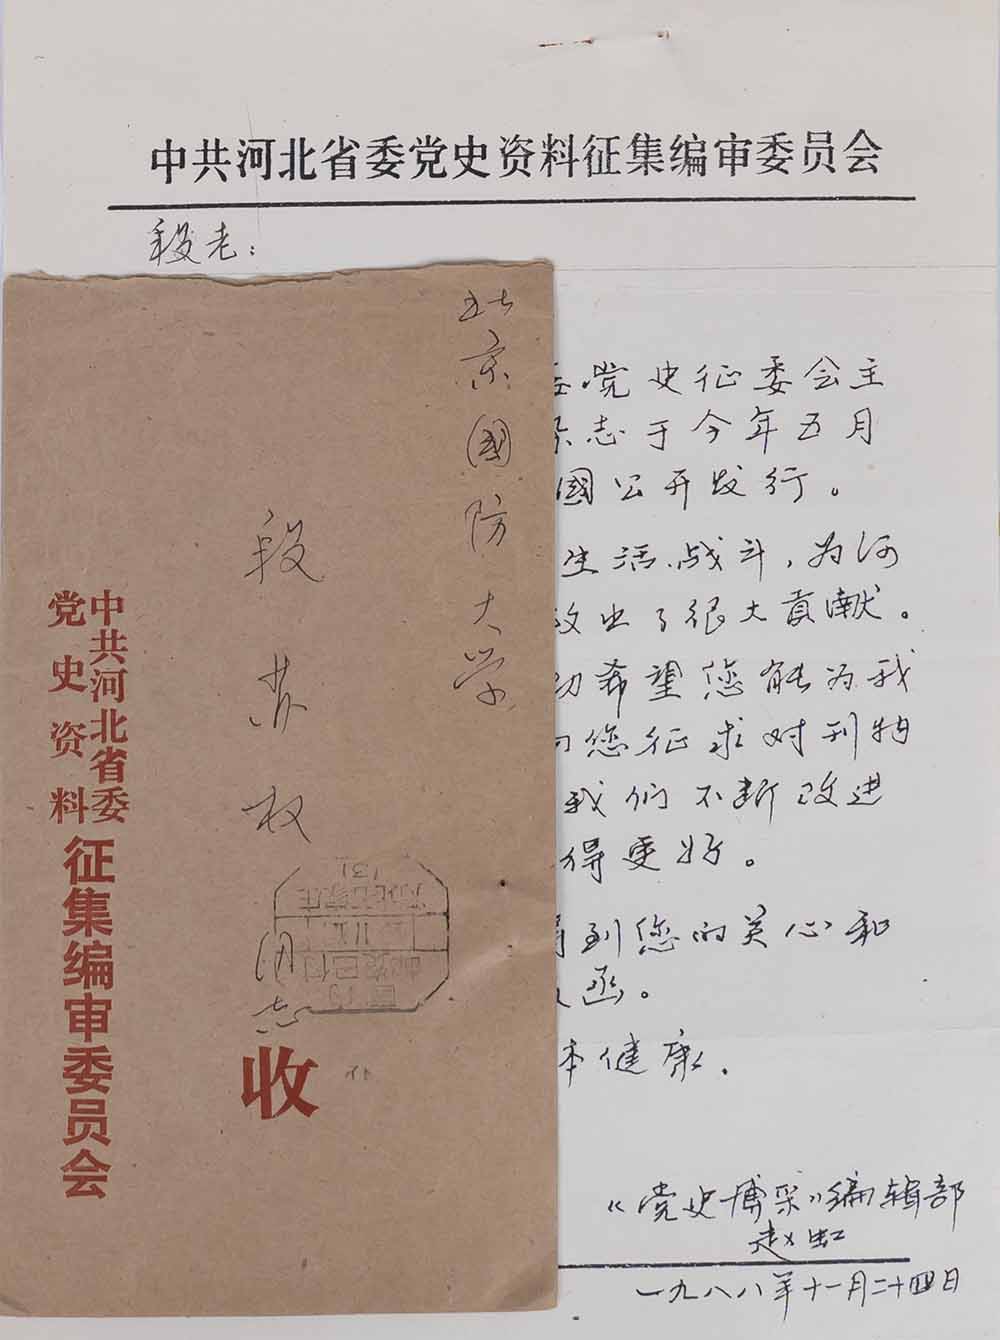 中共河北省委党史资料征集编审委员会
段老：
党史征委会主
杂志于今年五月
國公开发行。
生活战斗，为河
出了很大貢献。
希望您能为我
您征求对刊物
我们不断改进
得更好。
到您的关心和
函。
健康.
《党史博采》编辑部
赵虹
一九八八年十一月二十四日
北京國防大学
段苏权
同志
收
中共河北省委
党史资料
征集编审委员会